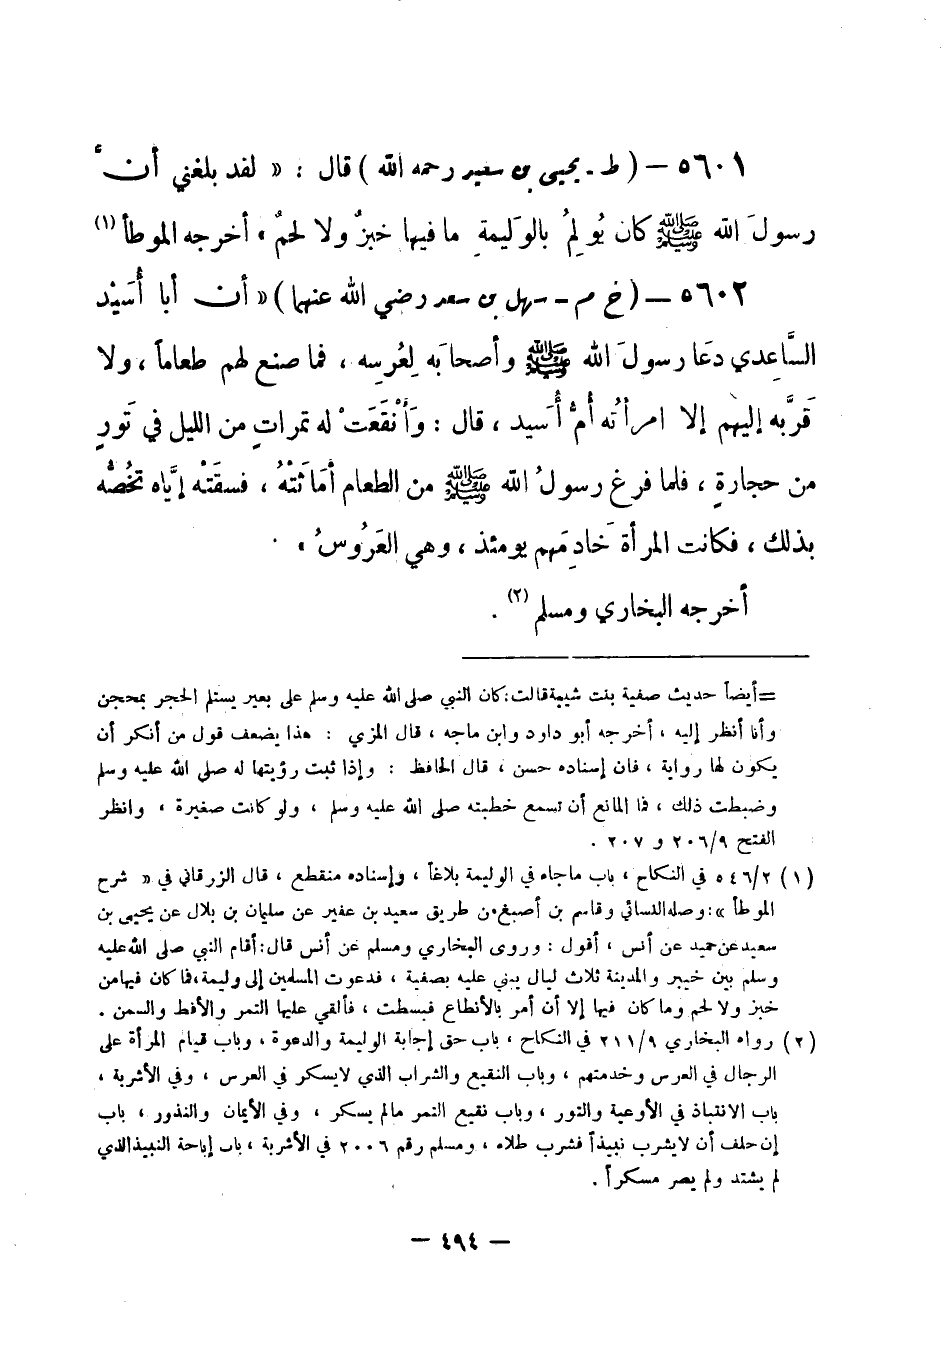 ٥٦٠١ – ( ط - يحيى بن سعيد رحمه الله ) قال : « لقد بلغني أن
رسولَ الله ﷺ كان يُولِمُ بالوَليمةِ ما فيها خبزٌ ولا لحمٌ » أخرجه الموطأ (١)
٥٦٠٢ – ( خ م – سهل بن سعد رضي الله عنهما ) « أن أبا أُسَيْد
السَّاعِدي دعَا رسولَ الله ﷺ وأصحابَه لِعُرسِه ، فما صنع لهم طعاماً ، ولا
قَرَّبه إليهم إلا امرأتُه أمُّ أُسَيد ، قال : وَأَنْقَعَتْ له تمراتٍ من الليل في تَورٍ
من حجارةٍ ، فلما فرغ رسولُ الله ﷺ من الطعام أمَاثَتْهُ ، فسقتْه إيَّاه تخُصُّه
بذلك ، فكانت المرأة خادِمَهم يومئذ ، وهي العَرُوسُ »
أخرجه البخاري ومسلم (٢) .
= أيضاً حديث صفية بنت شيبة قالت : كان النبي صلى الله عليه وسلم على بعير يستلم الحجر بمحجن
وأنا أنظر إليه ، أخرجه أبو داود وابن ماجه ، قال المزي : هذا يضعف قول من أنكر أن
يكون لها رواية ، فان إسناده حسن ، قال الحافظ : وإذا ثبت رؤيتها له صلى الله عليه وسلم
وضبطت ذلك ، فما المانع أن تسمع خطبته صلى الله عليه وسلم ، ولو كانت صغيرة ، وانظر
الفتح ٢٠٦/٩ و ٢٠٧ .
(١) ٥٤٦/٢ في النكاح ، باب ماجاء في الوليمة بلاغاً ، وإسناده منقطع ، قال الزرقاني في « شرح
الموطأ » : وصله النسائي وقاسم بن أصبغ من طريق سعيد بن عفير عن سليمان بن بلال عن يحيى بن
سعيد عن حميد عن أنس ، أقول : وروى البخاري ومسلم عن أنس قال : أقام النبي صلى الله عليه
وسلم بين خيبر والمدينة ثلاث ليال يبني عليه بصفية ، فدعوت المسلمين إلى وليمة ، فما كان فيها من
خبز ولا لحم وما كان فيها إلا أن أمر بالأنطاع فبسطت ، فألقي عليها التمر والأقط والسمن .
(٢) رواه البخاري ٢١١/٩ في النكاح ، باب حق إجابة الوليمة والدعوة ، وباب قيام المرأة على
الرجال في العرس وخدمتهم ، وباب النقيع والشراب الذي لايسكر في العرس ، وفي الأشربة ،
باب الانتباذ في الأوعية والتور ، وباب نقيع التمر مالم يسكر ، وفي الأيمان والنذور ، باب
إن حلف أن لايشرب نبيذاً فشرب طلاء ، ومسلم رقم ٢٠٠٦ في الأشربة ، باب إباحة النبيذ الذي
لم يشتد ولم يصر مسكراً .
– ٤٩٤ –